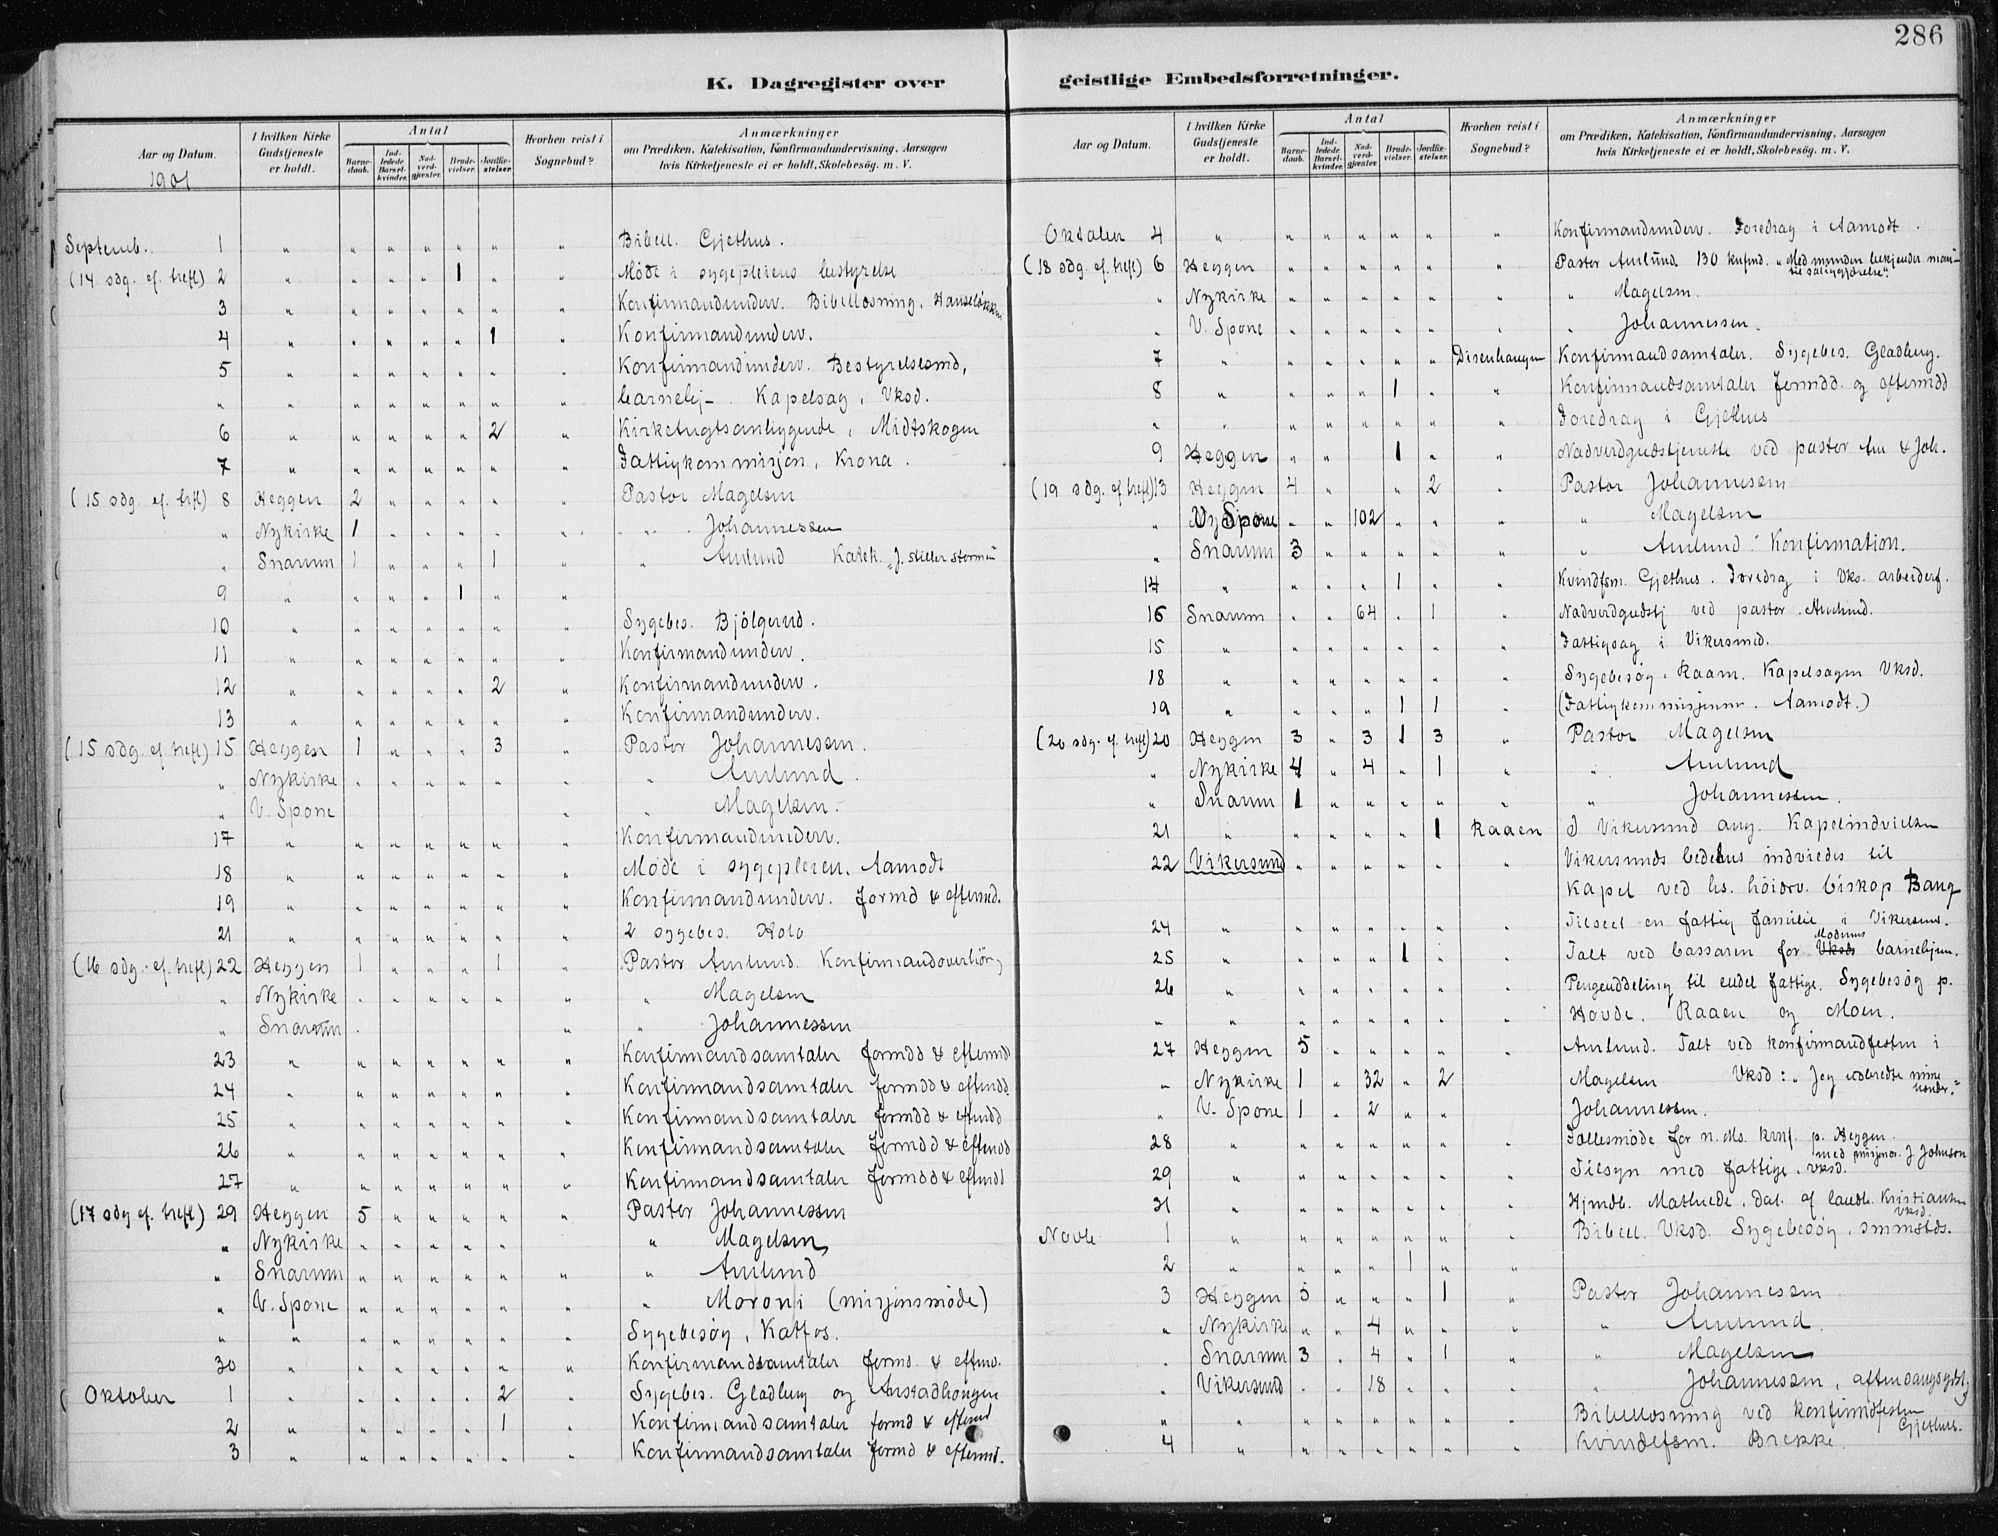 286
K. Dagregister over geistlige Embedsforretninger.
Aar og Datum.
I hvilken Kirke Gudstjeneste er holdt.
Antal
Barnedaab.
Indledede Barselkvinder.
Nadverdgjester.
Brudevielser.
Jordfæstelser.
Hvorhen reist i Sognebud?
Anmærkninger
om Prædiken, Katekisation, Konfirmandundervisning, Aarsagen
hvis Kirketjeneste ei er holdt, Skolebesøg. m. V.
1901
Septemb. 1 " " " " " " " Bibell. Gjethus.
(14 sdg. ef. trefl) 2 " " " " 1 " " Møde i sygepleiens bestyrelse
3 " " " " " " " Konfirmandunderv. Bibellæsning,
4 " " " " " 1 " Konfirmandunderv.
5 " " " " " " " Konfirmandunderv.
" " " " " " " " Kapelsag, Vksd.
6 " " " " " 2 " Kirketugtsanliggende, Midtskogen
7 " " " " " " " Fattigkommisjon, Krona.
(15 sdg. ef. trefl) 8 Heggen 2 " " " " " Pastor Magelsen
" Nykirke 1 " " " " " " Johannessen
" Snarum 1 " " " 1 " " Amlund Katek. "J. stiller stormen
9 " " " " 1 " "
10 " " " " " " " Sygebes. Bjölgerud.
11 " " " " " " " Konfirmandunderv.
12 " " " " " 2 " Konfirmandunderv.
13 " " " " " " " Konfirmandunderv.
(15 sdg. ef. trefl) 15 Heggen 1 " " " 3 " Pastor Johannessen.
" Nykirke " " " " " " " Amlund.
" V. Spone " " Magelsen.
17 " " " " " " " Konfirmandunderv.
18 " " " " " " " Møde i sygepleien. Aamodt
19 " " " " " " " Konfirmandunderv. formd & eftermd.
21 " " " " " " " 2 sygebes. Holo
(16 sdg. ef. trefl) 22 Heggen 1 " " " 1 " Pastor Amlund. Konfirmandoverhör,
" Nykirke " " " " " " " Magelsen
" Snarum " " " Johannessen
23 " " " " " " " Konfirmandsamtaler formdd & eftermdd
24 " " " " " " " Konfirmandsamtaler formdd & eftermdd
25 " " " " " " " Konfirmandsamtaler formdd & eftermdd
26 " " " " " " " Konfirmandsamtaler formdd & eftermdd
27 " " " " " " " Konfirmandsamtaler formdd & eftermdd
(17 sdg ef. trefl) 29 Heggen 5 " " " " " Pastor Johannessen
" Nykirke " " " " " " Magelsen
" Snarum " " " " " " " Amlund
" V. Spone " " " " " " " Moroni (misjonsmöde)
" " " " " " " " Sygebesög, Katfos.
30 " " " " " " " Konfirmandsamtaler formd. & eftmd.
Oktober 1 " " " " " 2 " Sygebes. Gladberg og
2 " " " " " 1 " Konfirmandsamtaler formd & eftermd
3 " " " " " " " Konfirmandsamtaler formd & eftermd.
Aar og Datum.
I hvilken Kirke Gudstjeneste er holdt.
Antal
Barnedaab.
Indledede Barselkvinder.
Nadverdgjester.
Brudevielser.
Jordfæstelser.
Hvorhen reist i Sognebud?
Anmærkninger
om Prædiken, Katekisation, Konfirmandundervisning, Aarsagen
hvis Kirketjeneste ei er holdt, Skolebesøg. m. V.
Oktober 4 " " " " " " " Konfirmandunderv. Foredrag i Aamodt.
(18 sdg. ef. trefl) 6 Heggen " " " " " " Pastor Amlund. 130 knfmd. "Med munden bekjender man til saliggjørelse".
" Nykirke " " " " " " " Magelsen.
" V. Spone " " " " " " " Johannessen.
7 " " " " " " Disenhaugen Konfirmandsamtaler. Sygebes. Gladberg.
8 " " " " 1 " " Konfirmandsamtaler formdd. og eftermdd
" " " " " " " " Foredrag i Gjethus
9 Heggen " " 1 " " Nadverdgudstjeneste ved pastor Am & Joh.
(19 sdg. ef. trefl) 13 Heggen 4 " " " 2 " Pastor Johannessen
" V Spone " " 102 " " " " Magelsen
" Snarum 3 " " " " " " Amlund: Konfirmation.
14 " " " " 1 " " Kvindfsm. Gjethus. Foredrag i Vks. arbeiderf.
16 Snarum " " 64 " 1 " Nadverdgudstj ved pastor Amlund.
15 " " " " " " " Fattigsag i Vikersund.
18 " " " " " " " Sygebesög, Raaen. Kapelsagen Vksd.
19 " " " " 1 1 " (Fattigkommisjonen. Aamodt.)
(20 sdg. ef. trefl) 20 Heggen 3 " 3 1 3 " Pastor Magelsen
" Nykirke 4 " 4 " 1 " " Amlund
" Snarum 1 " " " " " " Johannessen.
21 " " " " " 1 Raaen I Vikersund ang. Kapelindvielsen
22 Vikersund " " " " " " Vikersunds bedehus indviedes til
Kapel ved hs. höiærv. biskop Bang
24 " " " " " " " Tilseet en fattig familie i Vikersund.
25 " " " " 1 " " Talt ved bassaren for Modums barnehjem.
26 " " " " " " " Pengeuddeling til endel fattige. Sygebesög p.
" " " " " " " " Hovde. Raaen og Moen.
27 Heggen 5 " " " " " Amlund. Talt ved konfirmandfesten i
" Nykirke 1 " 32 " 2 " Magelsen Vksd: "Jeg udbredte mine hænder."
" V. Spone 1 " 2 " " " Johannessen.
28 " " " " " " " Fællesmöde for n. Ms. krnf. p. Heggen.
29 " " " " " " " Tilsyn med fattige, Vksd. med misjonær. J Johnson
31 " " " " " " " Kristiansen Vksd.
Novbr 1 " " " " " " " Bibell. Vksd. Sygebesög, smmstds.
2 " " " " 1 " "
3 Heggen 3 " " " 1 " Pastor Johannessen
" Nykirke " " 4 " " " " Amlund.
" Snarum 3 " 4 " 1 " " Magelsen
" Vikersund " " 18 " " " " Johannessen, aftensangsgdstj
" " " " " " " " Bibellæsning ved konfirmdfesten Gjethus.
4 " " " " " " " Kvindefsm. Brekke.